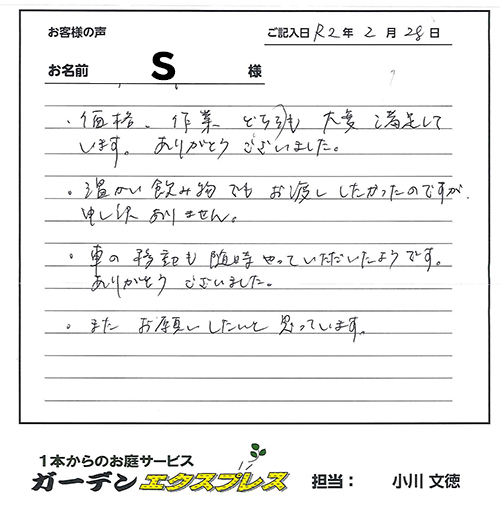 お客様の声
ご記入日 R2年 2月 28日
お名前 S 様
・価格、作業 どちらも 大変 満足して
います。ありがとう ございました。
・温かい飲み物でも お渡し したかったのですが、
申し訳ありません。
・車の 移動も 随時 やっていただいたようです。
ありがとう ございました。
・また お願いしたいと 思っています。
1本からのお庭サービス
ガーデンエクスプレス 担当： 小川 文徳